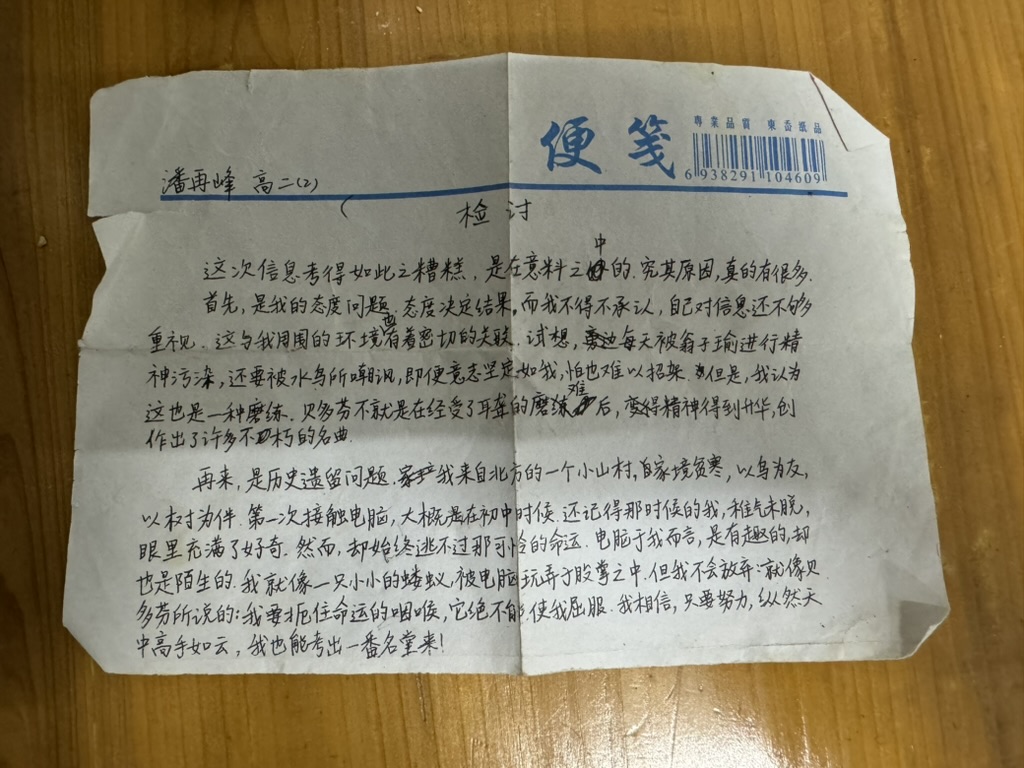 專業品質 東喬紙品
便笺
6 938291 104609
潘再峰 高二(2)
检讨
这次信息考得如此之糟糕,是在意料之中的.究其原因,真的有很多.
首先,是我的态度问题.态度决定结果.而我不得不承认,自己对信息还不够
重视.这与我周围的环境也有着密切的关联.试想,每天被翁子瑜进行精
神污染,还要被水鸟所嘲讽,即便意志坚定如我,怕也难以招架.但是,我认为
这也是一种磨练.贝多芬不就是在经受了耳聋的磨难后,变得精神得到升华,创
作出了许多不朽的名曲.
再来,是历史遗留问题.我来自北方的一个小山村,自家境贫寒,以鸟为友,
以树为伴.第一次接触电脑,大概是在初中时候.还记得那时候的我,稚气未脱,
眼里充满了好奇.然而,却始终逃不过那可怜的命运.电脑于我而言,是有趣的,却
也是陌生的.我就像一只小小的蝼蚁,被电脑玩弄于股掌之中.但我不会放弃.就像贝
多芬所说的:我要扼住命运的咽喉,它绝不能使我屈服.我相信,只要努力,纵然天
中高手如云,我也能考出一番名堂来!